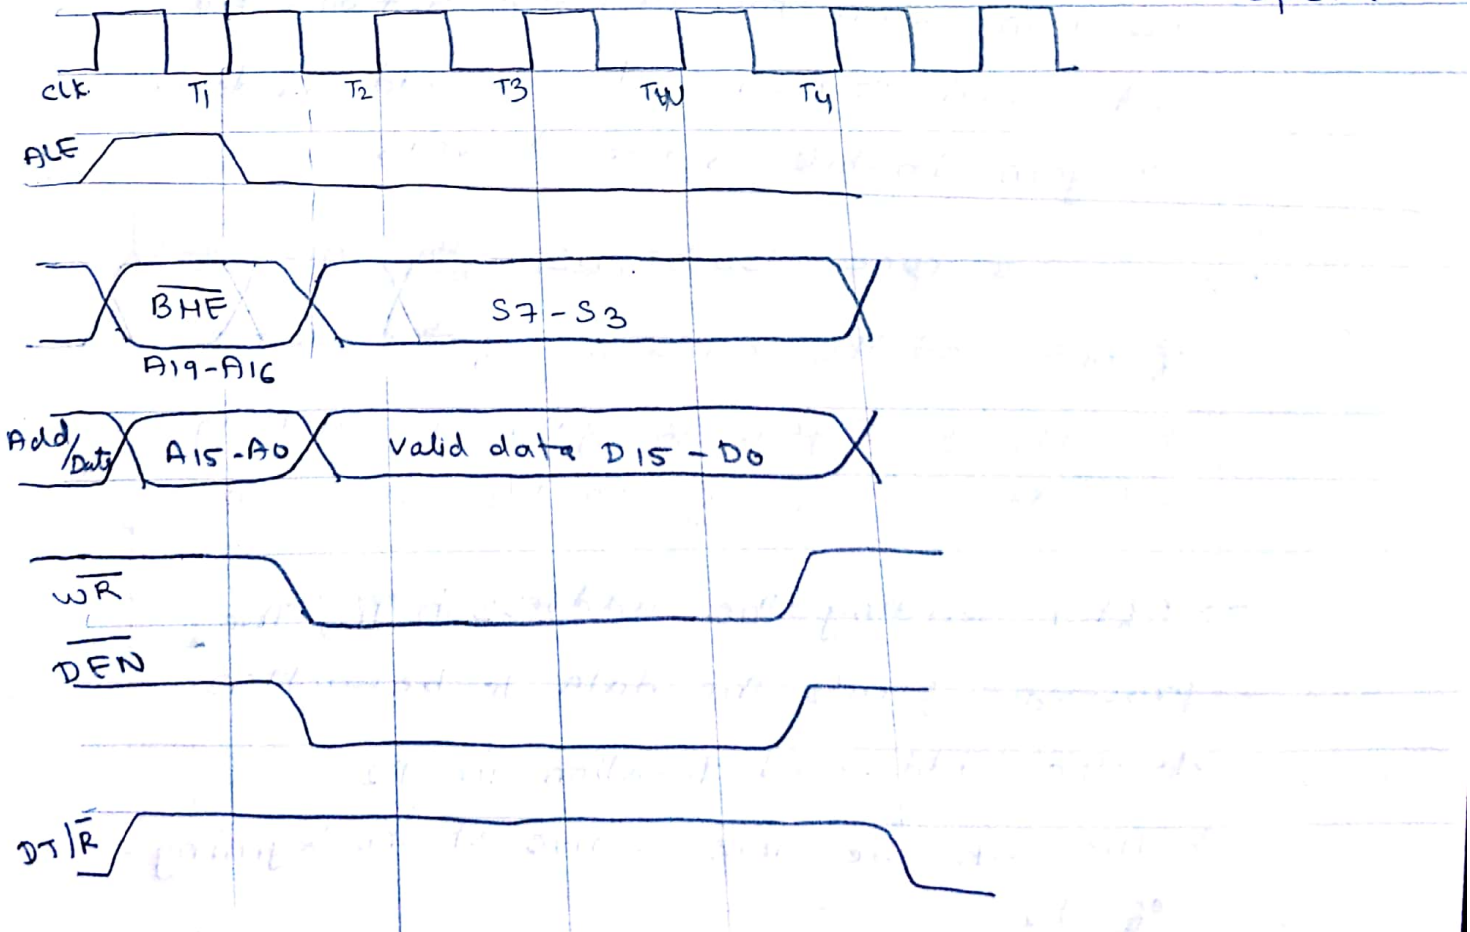 clk T1 T2 T3 TW T4
ALE
B̅H̅E̅ S7-S3
A19-A16
Add/Data A15-A0 Valid data D15-D0
W̅R̅
D̅E̅N̅
DT/R̅